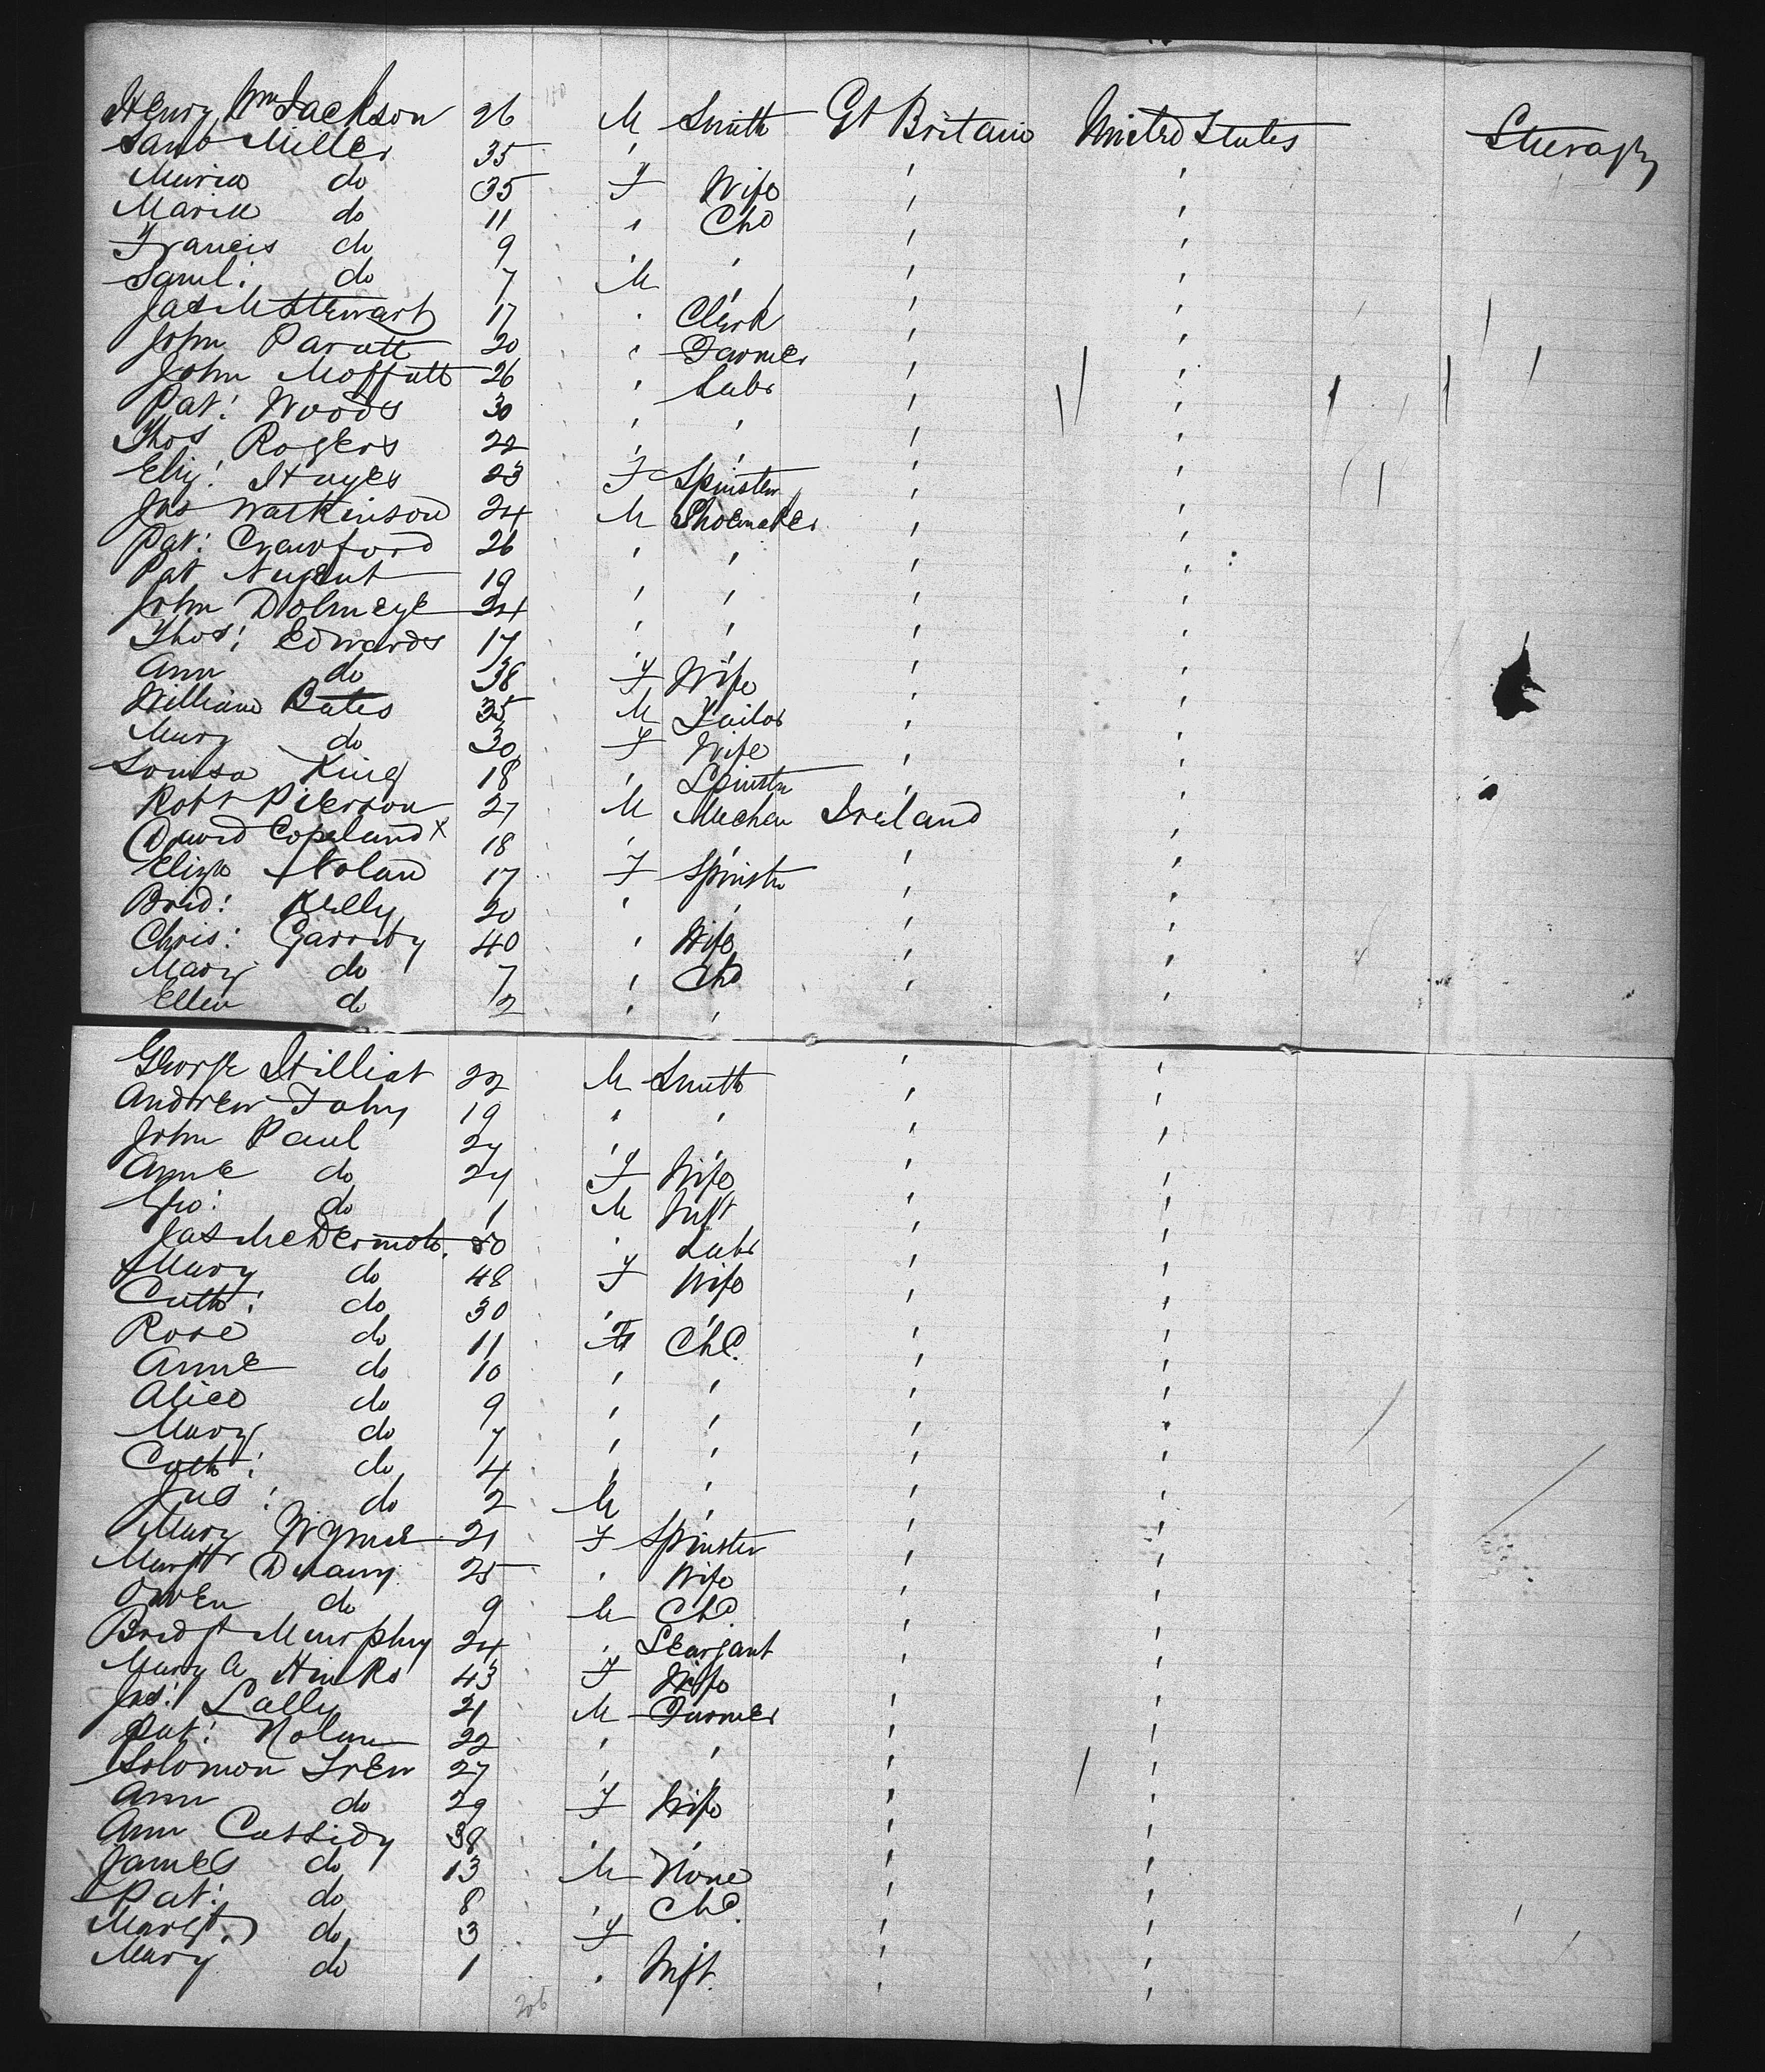 Henry Wm Jackson 26 M Smith Gt Britain United States Steerage
Saml Miller 35 '
Maria do 35 F Wife ' '
Maria do 11 ' Chd ' '
Francis do 9 ' ' '
Saml: do 7 M ' ' '
Jas M Stewart 17 ' Clerk ' '
John Paratt 20 ' Farmer ' '
John Moffatt 26 ' Labr ' '
Pat: Woods 30 ' ' ' '
Thos Rogers 22 ' ' ' '
Eliz: Hayes 23 F Spinster ' '
Jas Watkinson 24 M Shoemaker ' '
Pat: Crawford 26 ' ' ' '
Pat Nugent 19 ' ' ' '
John 24 ' ' ' '
Thos: Edwards 17 ' ' ' '
Ann do 38 F Wife ' '
William Bates 35 M Tailor ' '
Mary do 30 F Wife ' '
Louisa King 18 ' Spinstr ' '
Robt Pierson 27 M Mechan Ireland '
David Copeland x 18 ' ' ' '
Eliza Nolan 17 F Spinstr ' '
Brid: Kelly 20 ' ' ' '
Chris: Garrity 40 ' Wife ' '
Mary do 7 ' Chd ' '
Ellen do 2 ' ' ' '
George 22 M Smith ' '
Andrew Fahy 19 ' ' ' '
John Paul 27 ' ' ' '
Anne do 27 F Wife ' '
Geo: do 1 M Inft ' '
Jas McDermott 50 ' Labr ' '
Mary do 48 F Wife ' '
Cath: do 30 ' ' ' '
Rose do 11 F Chd. ' '
Anne do 10 ' ' ' '
Alice do 9 ' ' ' '
Mary do 7 ' ' ' '
Cath: do 4 ' ' ' '
Jas: do 2 M ' ' '
Mary Wynne 21 F Spinster ' '
Margt 25 ' Wife ' '
Owen do 9 M Chd. ' '
Bridgt Murphy 24 ' Searjant ' '
Mary A Hinks 43 F Wife ' '
Jas: Lally 21 M Farmer ' '
Pat: Nolan 22 ' ' ' '
Solomon Tren 27 ' ' ' '
Ann do 29 F Wife ' '
Ann Cassidy 38 ' ' ' '
James do 13 M None ' '
Pat: do 8 ' Chd. ' '
Margt: do 3 F ' '
Mary do 1 ' Inft. ' '
206